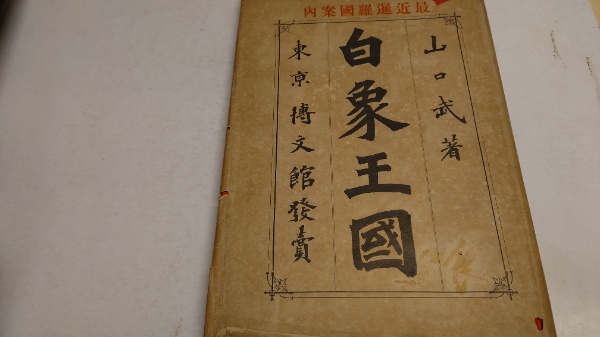 內案國羅暹近最
山口武著
白象王國
東京博文館發賣